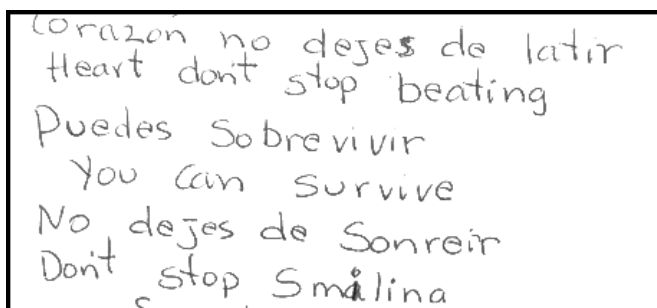 Corazón no dejes de latir
Heart don't stop beating
Puedes Sobrevivir
You Can Survive
No dejes de Sonreir
Don't stop Smilina